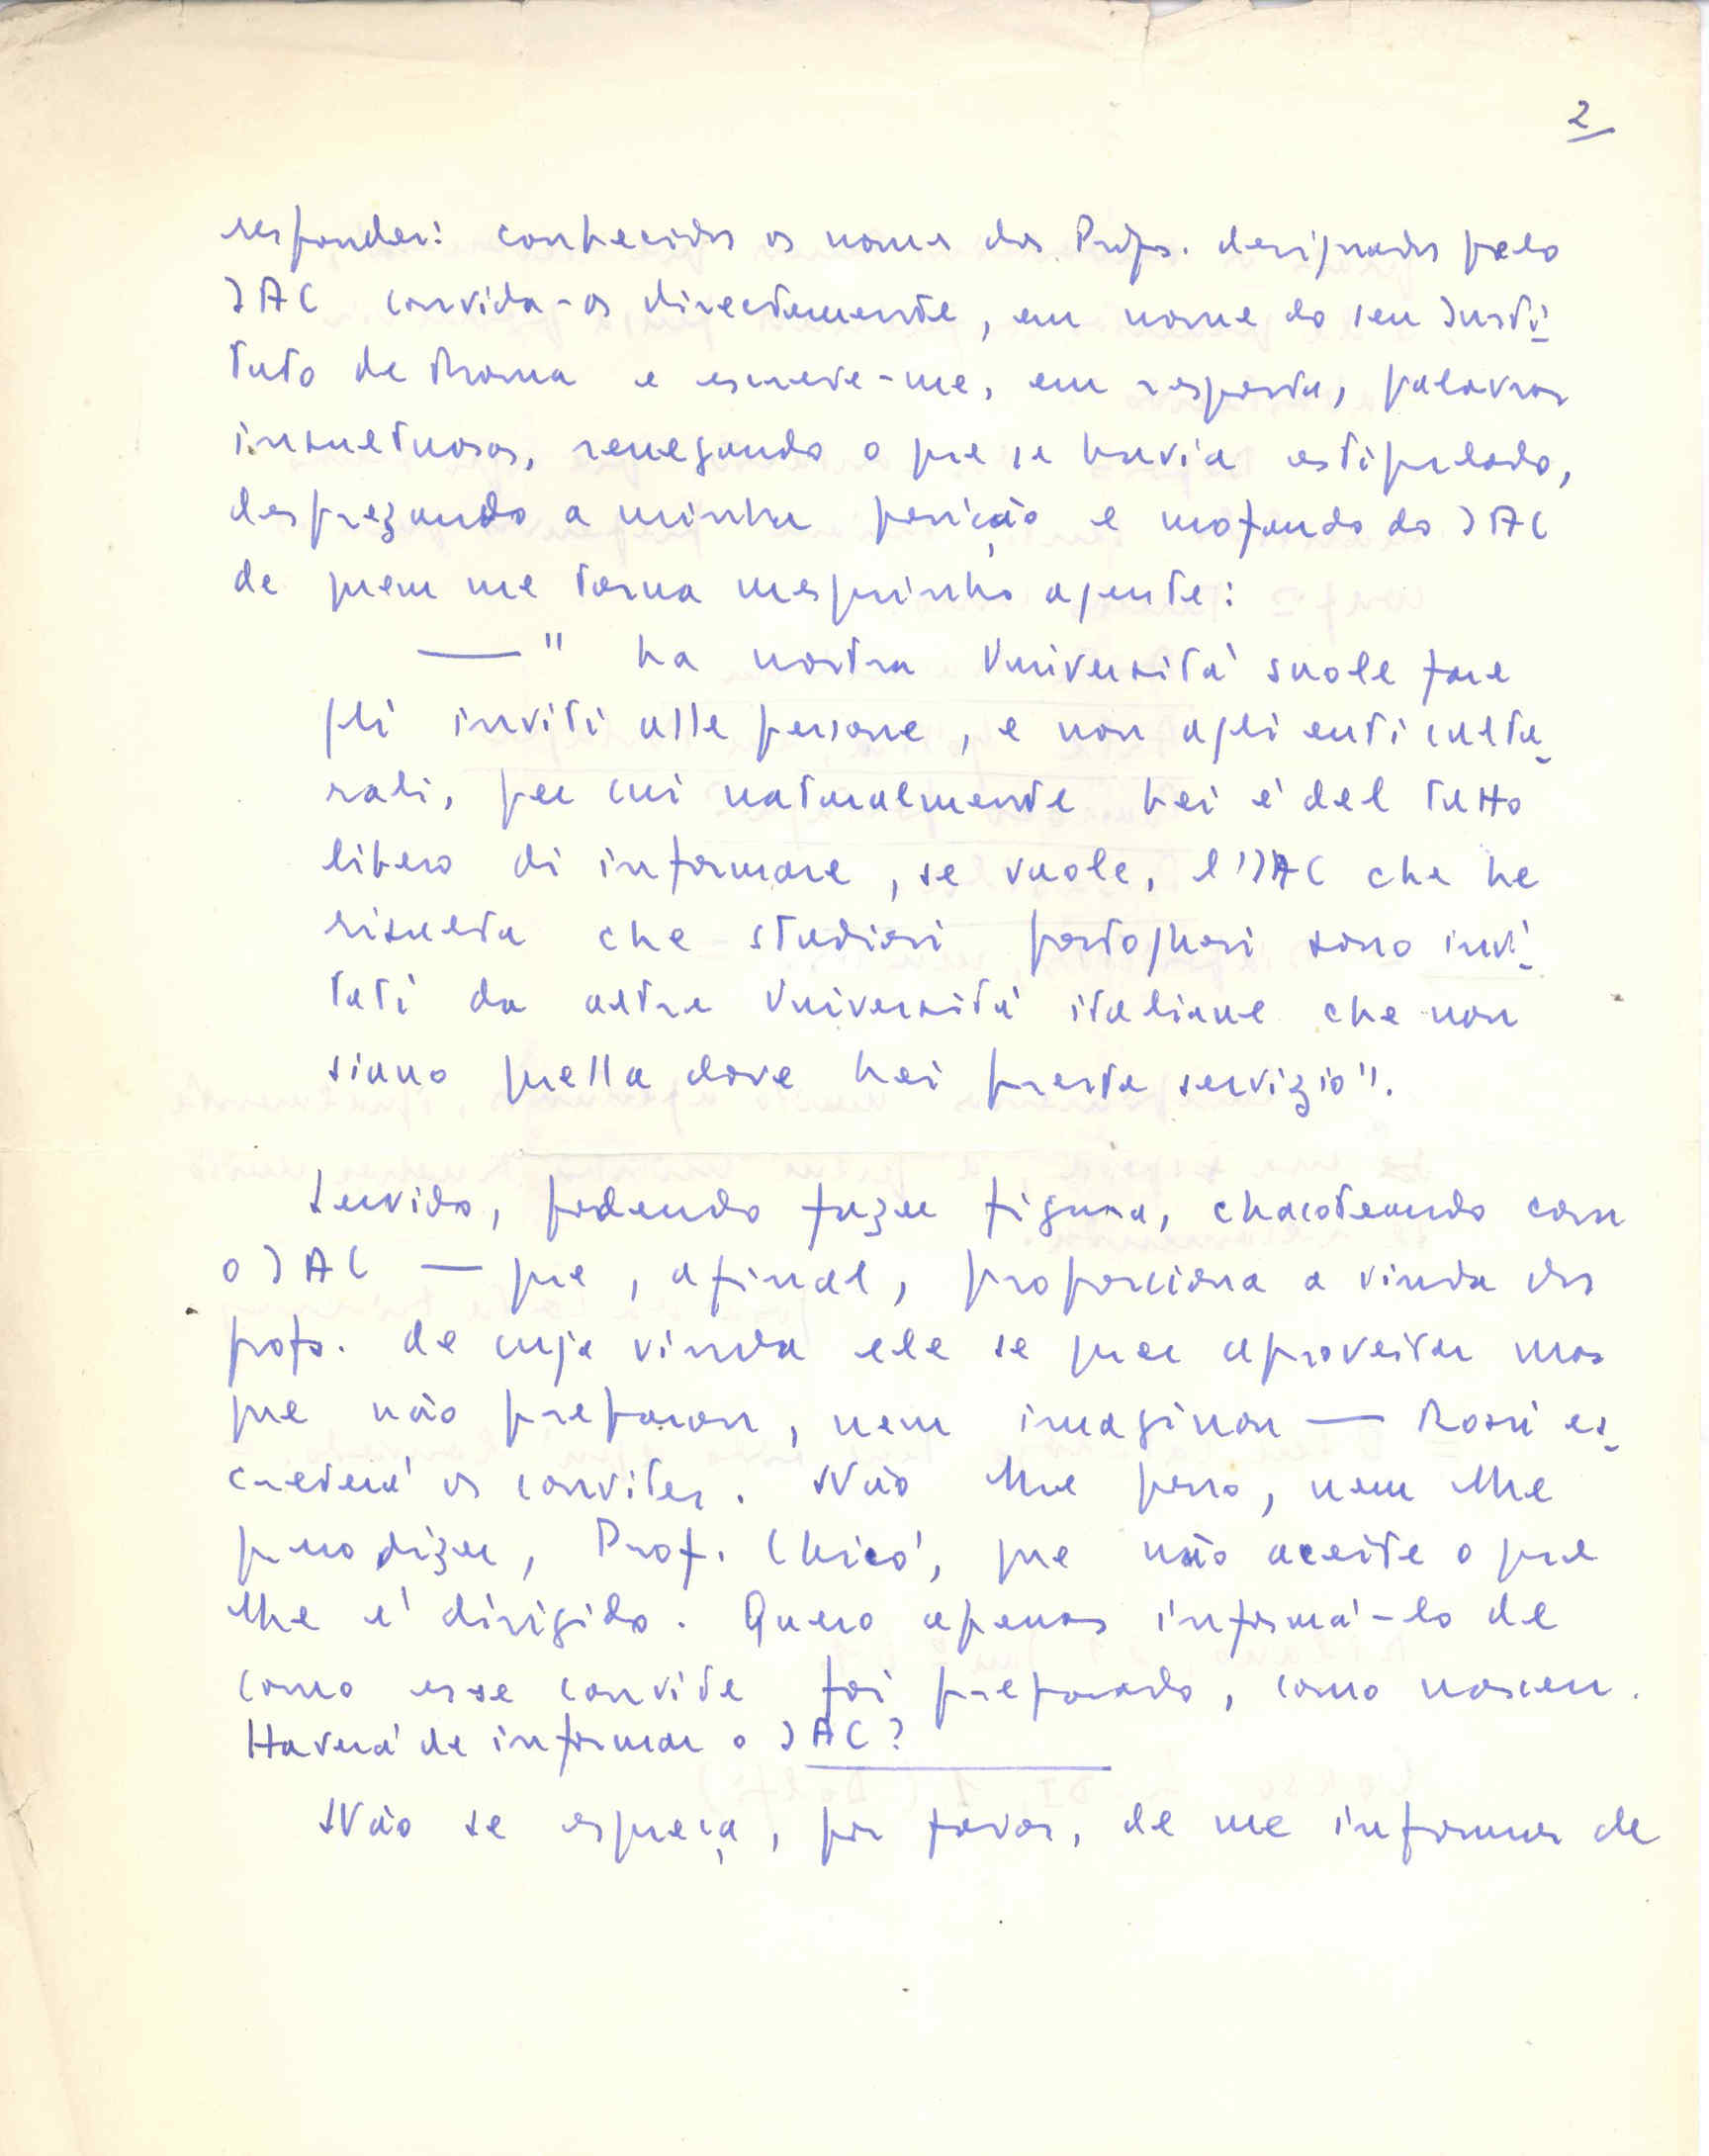 2
responder: conhecidos os nomes dos Profs. designados pelo
IAC convida-os directamente, em nome do seu Insti-
tuto de Roma e escreve-me, em resposta, palavras
insultuosas, renegando o que se havia estipulado,
desprezando a minha posição e mofando do IAC
de quem me torna mesquinho agente:
—" La nostra Università suole fare
gli inviti alle persone, e non agli enti cultu-
rali, per cui naturalmente Lei è del tutto
libero di informare, se vuole, l'IAC che Le
risulta che studiosi portoghesi sono invi-
tati da altre Università italiane che non
siano quella dove Lei presta servizio".
Servido, podendo fazer figura, chacoteando com
o IAC — que, afinal, proporciona a vinda dos
profs. de cuja vinda ele se quer aproveitar mas
que não preparou, nem imaginou — Rossi es-
creverá os convites. Não lhe peço, nem lhe
quero dizer, Prof. Chicó, que não aceite o que
lhe é dirigido. Quero apenas informá-lo de
como esse convite foi preparado, como nasceu.
Haverá de informar o IAC?
Não se esqueça, por favor, de me informar de